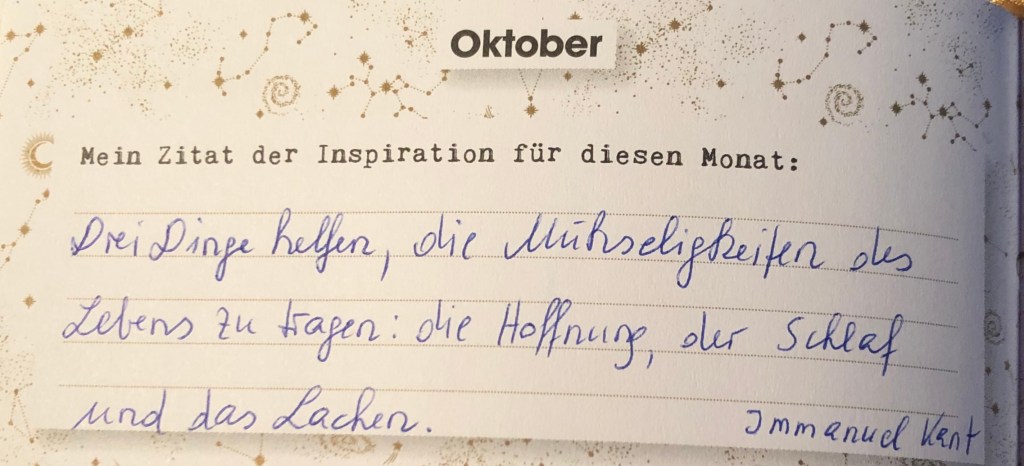 Oktober
Mein Zitat der Inspiration für diesen Monat:
Drei Dinge helfen, die Mühseligkeiten des
Lebens zu tragen: die Hoffnung, der Schlaf
und das Lachen.
Immanuel Kant